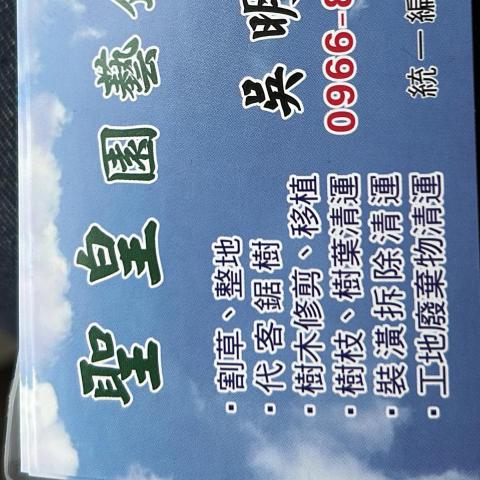 聖皇園藝
吳明
0966-8
統一編
·割草、整地
·代客鋸樹
·樹木修剪、移植
·樹枝、樹葉清運
·裝潢拆除清運
·工地廢棄物清運